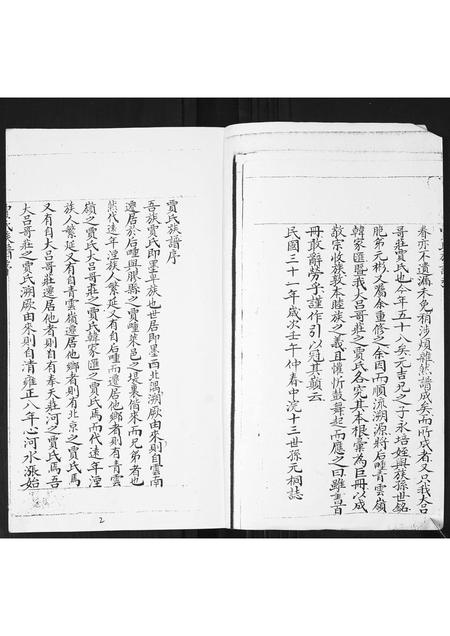 春亦不遺漏未免稍涉煩雜然譜成矣而所武者又只我大呂
哥莊賈氏也今年五十八矣元吉兄之子永培姪與族孫世銘
胞弟元彬又屬余重修之余因而順流溯源將后疃青雲嶺
韓家匯暨我大呂哥莊之賈氏各究其本根彙為巨冊以成
敬宗收族敦本睦族之義且懽忻鼓舞起而應之曰雖晝昏
冊敢辭勞乎謹作引以冠其顛云
民國三十一年歲次壬午仲春中浣十三世孫元桐誌
賈氏族譜序
吾族賈氏即墨單族也世居即墨西北隅溯厥由來則自雲南
遷居於后疃與膠縣之賈疃萊邑之堤裏偕來而兄弟者也
然代遠年湮族人繁延又有自后疃而遷居他鄉者則有青雲
嶺之賈氏大呂哥莊之賈氏韓家匯之賈氏焉而代遠年湮
族人繁延又有自青雲嶺遷居他鄉者則有北京之賈氏焉
又有自大呂哥莊遷居他者則自有奉天莊河之賈氏焉吾
大呂哥莊之賈氏溯厥由來則自清雍正八年沁河水漲始
2